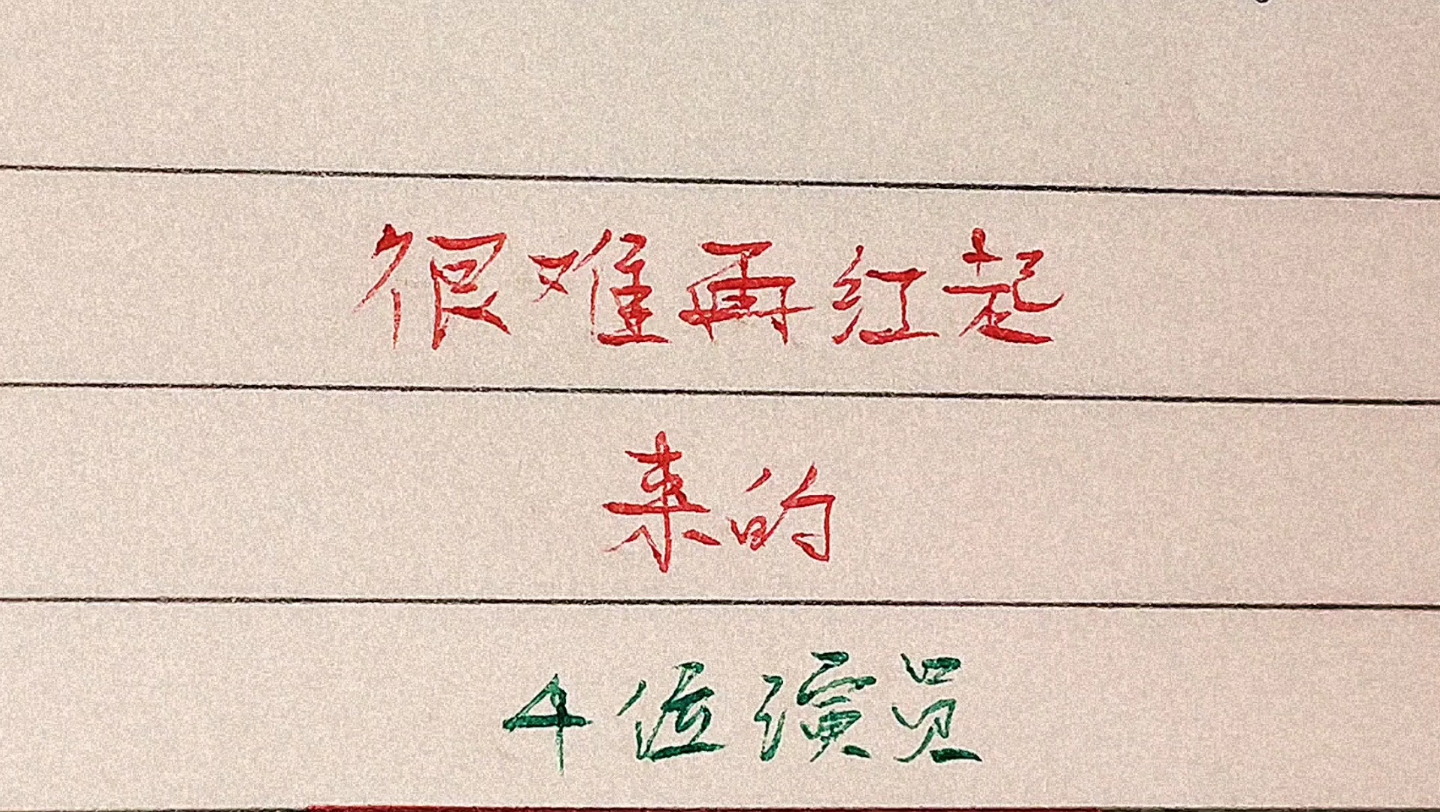 很难再红起
来的
4位演员